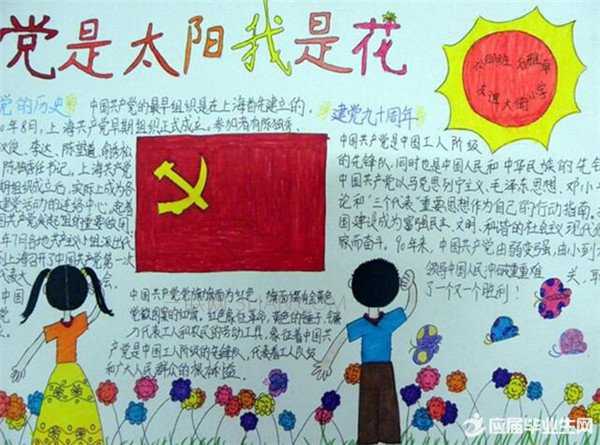 党是太阳我是花
六四班
友谊大街小学
党的历史
中国共产党的最早组织是在上海首先建立的,
0年8月,上海共产党早期组织正式成立。参加者有陈独秀、
汉俊、李达、陈望道、俞秀松
陈独秀任书记。上海共产党
期组织成立后,实际上成为各
建党活动的联络中心,起着
国共产党发起组的重要作用
年7月各地共产主义小组派出代
上海召开了中国共产党第一
代表大会
中国
建党九十周年
中国共产党是中国工人阶级
的先锋队,同时也是中国人民和中华民族的先锋
中国共产党以马克思列宁主义、毛泽东思想、邓小
论和“三个代表”重要思想作为自己的行动指南,
国建设成为富强民主、文明、和谐的社会主义现代
家而奋斗。90年来,中国共产党由弱变强,由小到
领导中国人民冲破重重难关,取
了一个又一个胜利!
中国共产党党旗旗面为红色,旗面缀有金黄色
党徽图案的旗帜。红色象征革命,黄色的锤子、镰
刀代表工人和农民的劳动工具,象征着中国共
产党是中国工人阶级的先锋队,代表着工人阶级
和广大人民群众的根本利益。
应届毕业生网